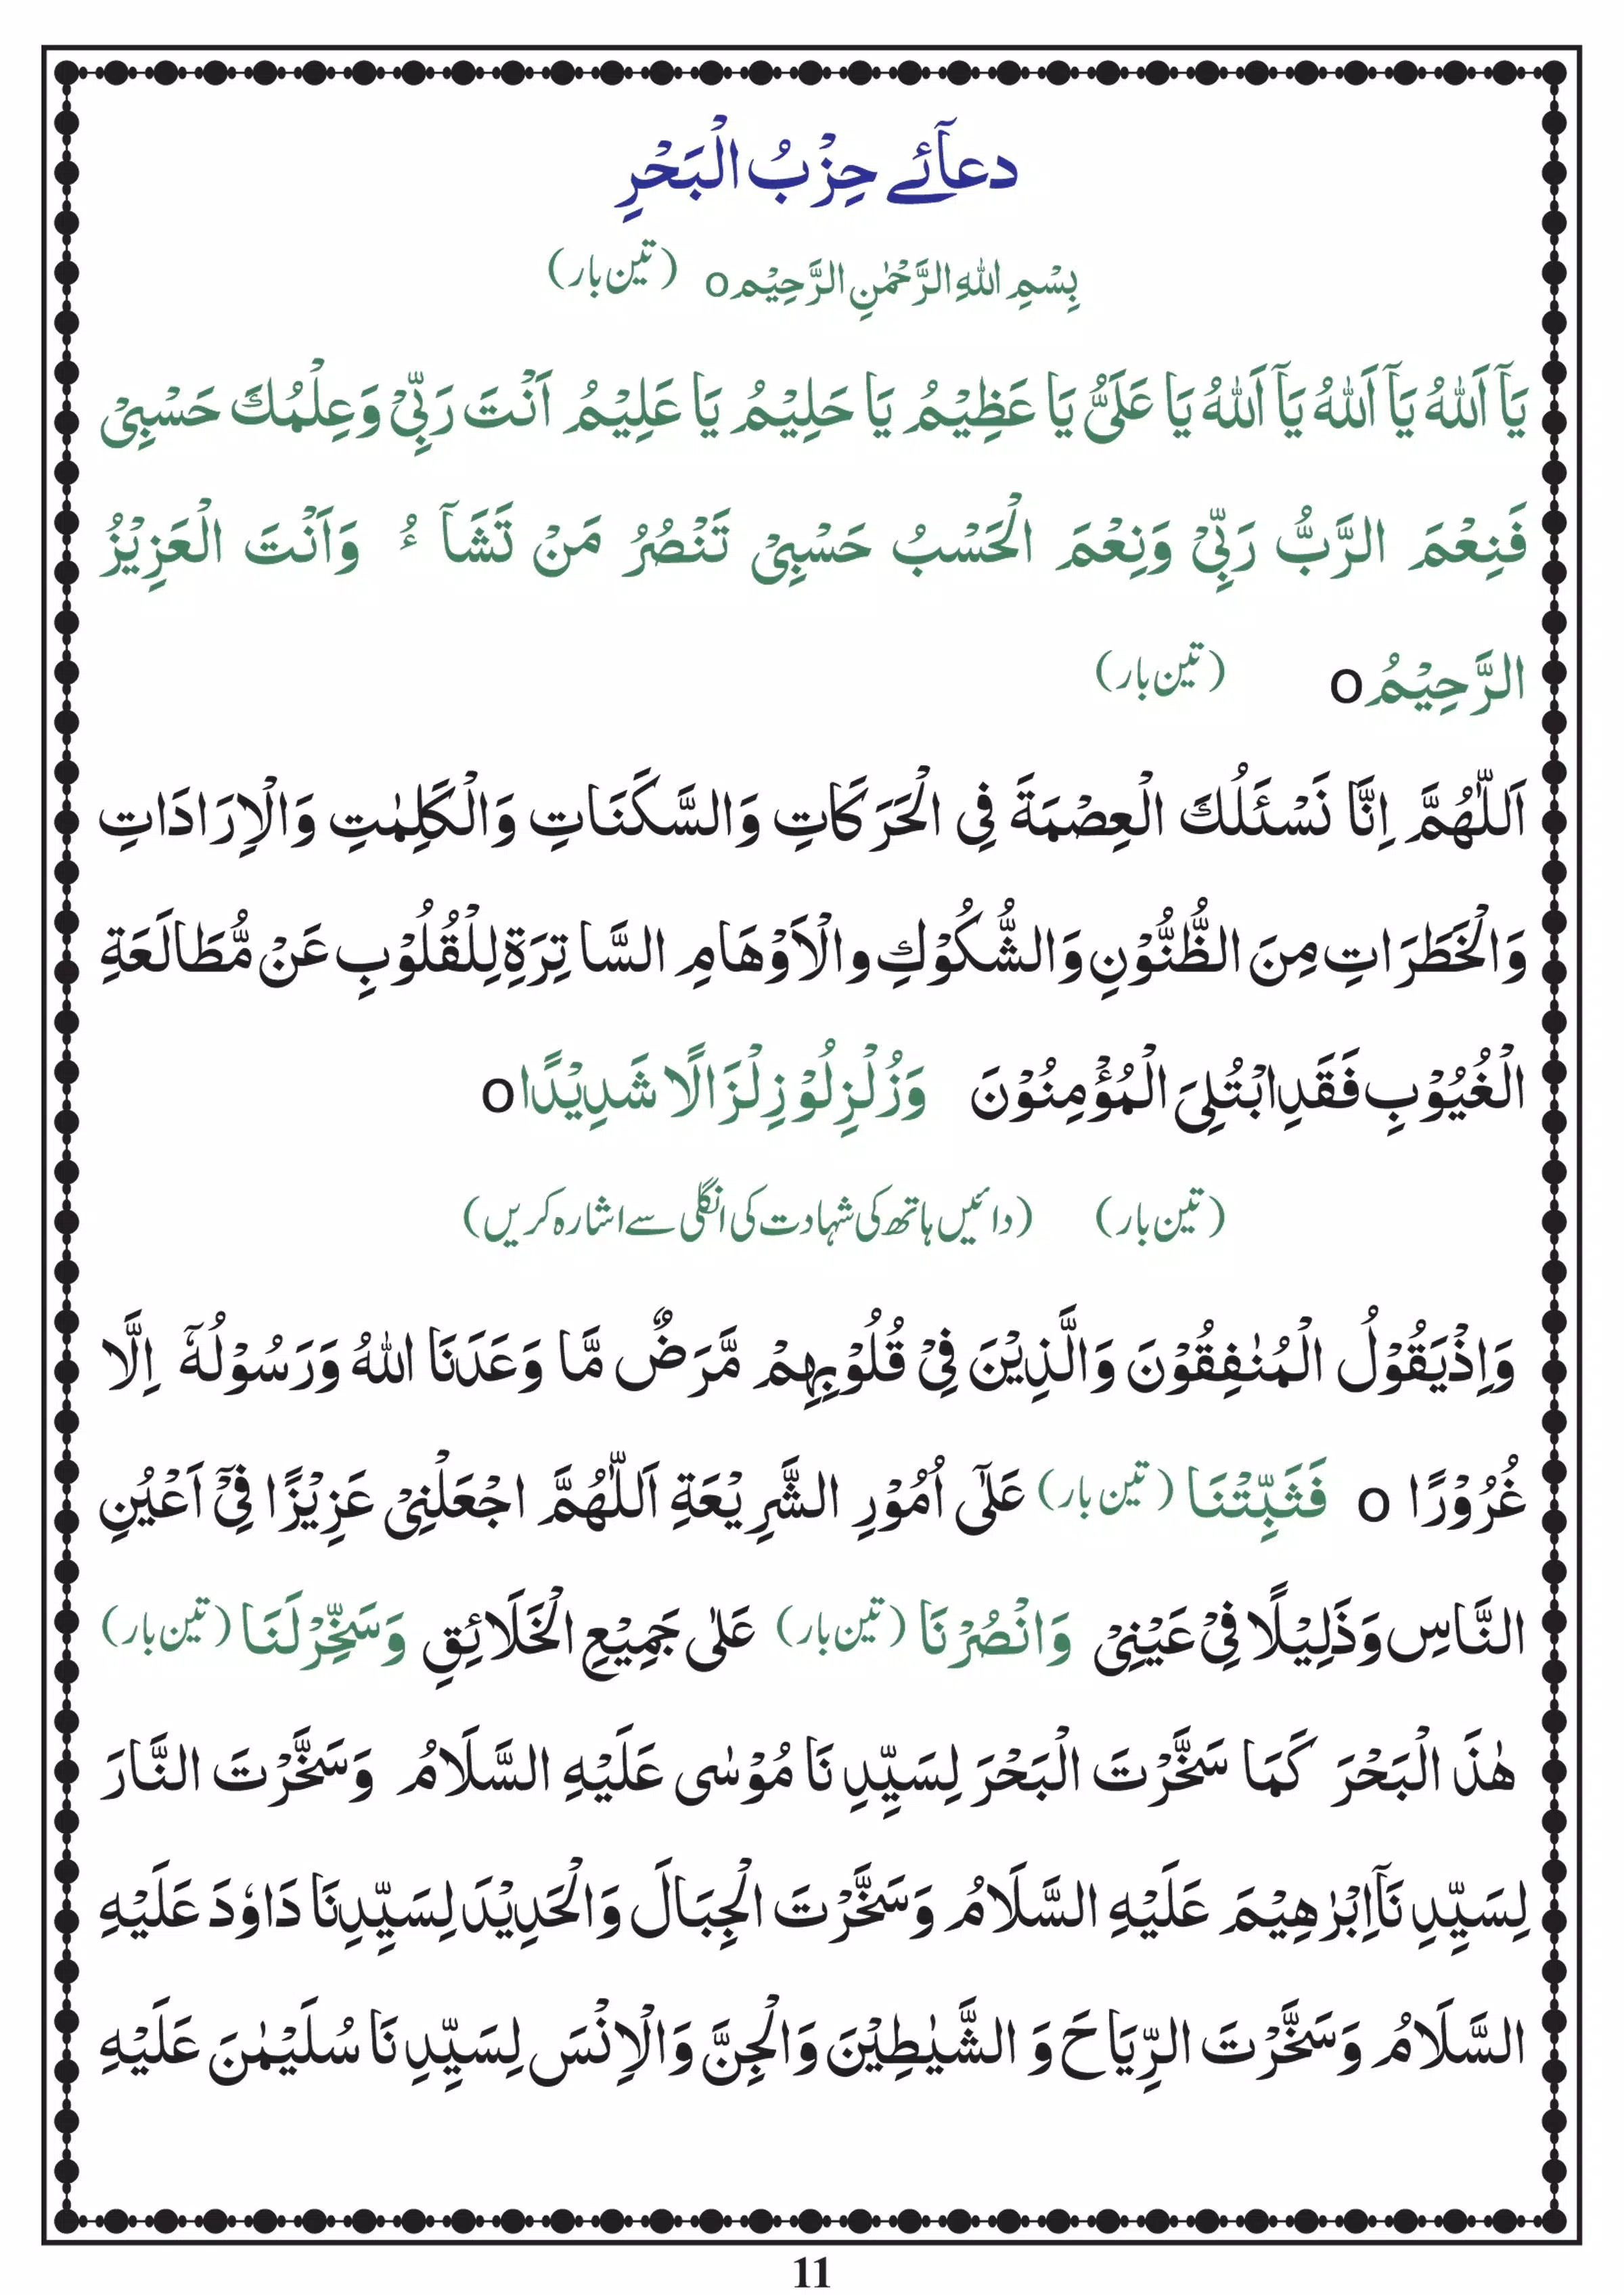 دعآئے حِزْبُ الْبَحْرِ
بِسْمِ اللهِ الرَّحْمٰنِ الرَّحِيْمِo (تین بار)
يَآ اَللهُ يَآ اَللهُ يَآ اَللهُ يَا عَلَىُّ يَا عَظِيْمُ يَا حَلِيْمُ يَا عَلِيْمُ اَنْتَ رَبِّىْ وَعِلْمُكَ حَسْبِىْ
فَنِعْمَ الرَّبُّ رَبِّىْ وَنِعْمَ الْحَسْبُ حَسْبِىْ تَنْصُرُ مَنْ تَشَآ ءُ وَاَنْتَ الْعَزِيْزُ
الرَّحِيْمُo (تین بار)
اَللّٰهُمَّ اِنَّا نَسْئَلُكَ الْعِصْمَةَ فِى الْحَرَكَاتِ وَالسَّكَنَاتِ وَالْكَلِمٰتِ وَالْاِرَادَاتِ
وَالْخَطَرَاتِ مِنَ الظُّنُّوْنِ وَالشُّكُوْكِ والْاَوْهَامِ السَّاتِرَةِ لِلْقُلُوْبِ عَنْ مُّطَالَعَةِ
الْغُيُوْبِ فَقَدِابْتُلِىَ الْمُؤْمِنُوْنَ وَزُلْزِلُوْ زِلْزَالًا شَدِيْدًاo
(تین بار) (دائیں ہاتھ کی شہادت کی انگلی سے اشارہ کریں)
وَاِذْيَقُوْلُ الْمُنٰفِقُوْنَ وَالَّذِيْنَ فِىْ قُلُوْبِهِمْ مَّرَضٌ مَّا وَعَدَنَا اللهُ وَرَسُوْلُهٗٓ اِلَّا
غُرُوْرًا o فَثَبِّتْنَا (تین بار) عَلٰٓى اُمُوْرِ الشَّرِيْعَةِ اَللّٰهُمَّ اجْعَلْنِىْ عَزِيْزًا فِىْٓ اَعْيُنِ
النَّاسِ وَذَلِيْلًا فِىْ عَيْنِىْ وَانْصُرْنَا (تین بار) عَلٰى جَمِيْعِ الْخَلَائِقِ وَسَخِّرْلَنَا (تین بار)
هٰذَ الْبَحْرَ كَمَا سَخَّرْتَ الْبَحْرَ لِسَيِّدِنَا مُوْسٰى عَلَيْهِ السَّلَامُ وَسَخَّرْتَ النَّارَ
لِسَيِّدِنَآاِبْرٰهِيْمَ عَلَيْهِ السَّلَامُ وَسَخَّرْتَ الْجِبَالَ وَالْحَدِيْدَ لِسَيِّدِنَا دَاوٗدَ عَلَيْهِ
السَّلَامُ وَسَخَّرْتَ الرِّيَاحَ وَ الشَّيٰطِيْنَ وَالْجِنَّ وَالْاِنْسَ لِسَيِّدِنَا سُلَيْمٰنَ عَلَيْهِ
11